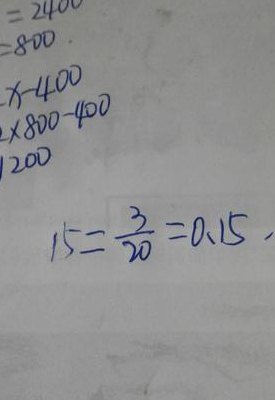 =2400
=800.
x-400
2×800-400
1200
15=3/20=0.15.